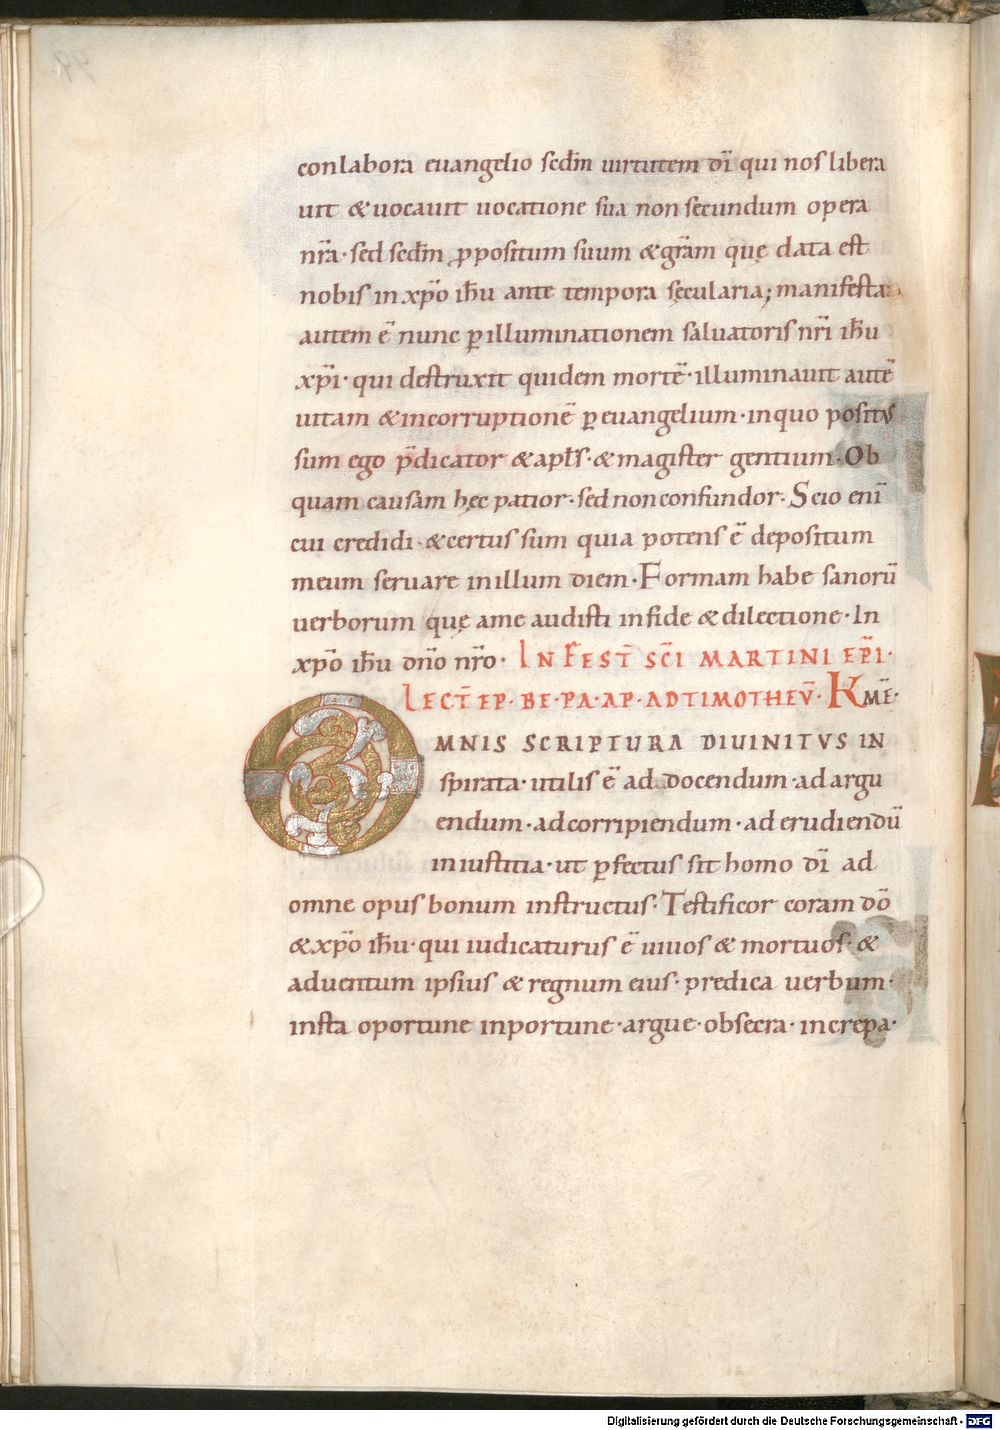 conlabora euangelio sedm̄ uirtutem dī qui nos libera
uit & uocauit uocatione sua non secundum opera
nr̄a· sed sedm̄ ꝓpositum suum & gr̄am quę data est
nobis in xp̄o ih̄u ante tempora sęcularia; manifesta
autem ē nunc ꝑ illuminationem saluatoris nr̄i ih̄u
xp̄i· qui destruxit quidem mortē· illuminauit autē
uitam & incorruptionē ꝑ euangelium· in quo positus
sum ego p̄dicator & apl̄s· & magister gentium· Ob
quam causam hęc patior· sed non confundor· Scio enī
cui credidi· & certus sum quia potens ē depositum
meum seruare in illum diem· Formam habe sanorū
uerborum quę a me audisti in fide & dilectione· In
xp̄o ih̄u dn̄o nr̄o· IN FEST̄ SC̄I MARTINI EP̄I·
LECT̄ EP· BE· PA· AP· AD TIMOTHEV̄· K̄MĒ·
OMNIS SCRIPTURA DIUINITVS IN
spirata· utilis ē ad docendum· ad argu
endum· ad corripiendum· ad erudiendū
in iustitia· ut ꝑfectus sit homo dī ad
omne opus bonum instructus· Testificor coram dō
& xp̄o ih̄u· qui iudicaturus ē uiuos & mortuos· &
aduentum ipsius & regnum eius· predica uerbum·
insta oportune inportune· argue· obsecra· increpa·
Digitalisierung gefördert durch die Deutsche Forschungsgemeinschaft - DFG